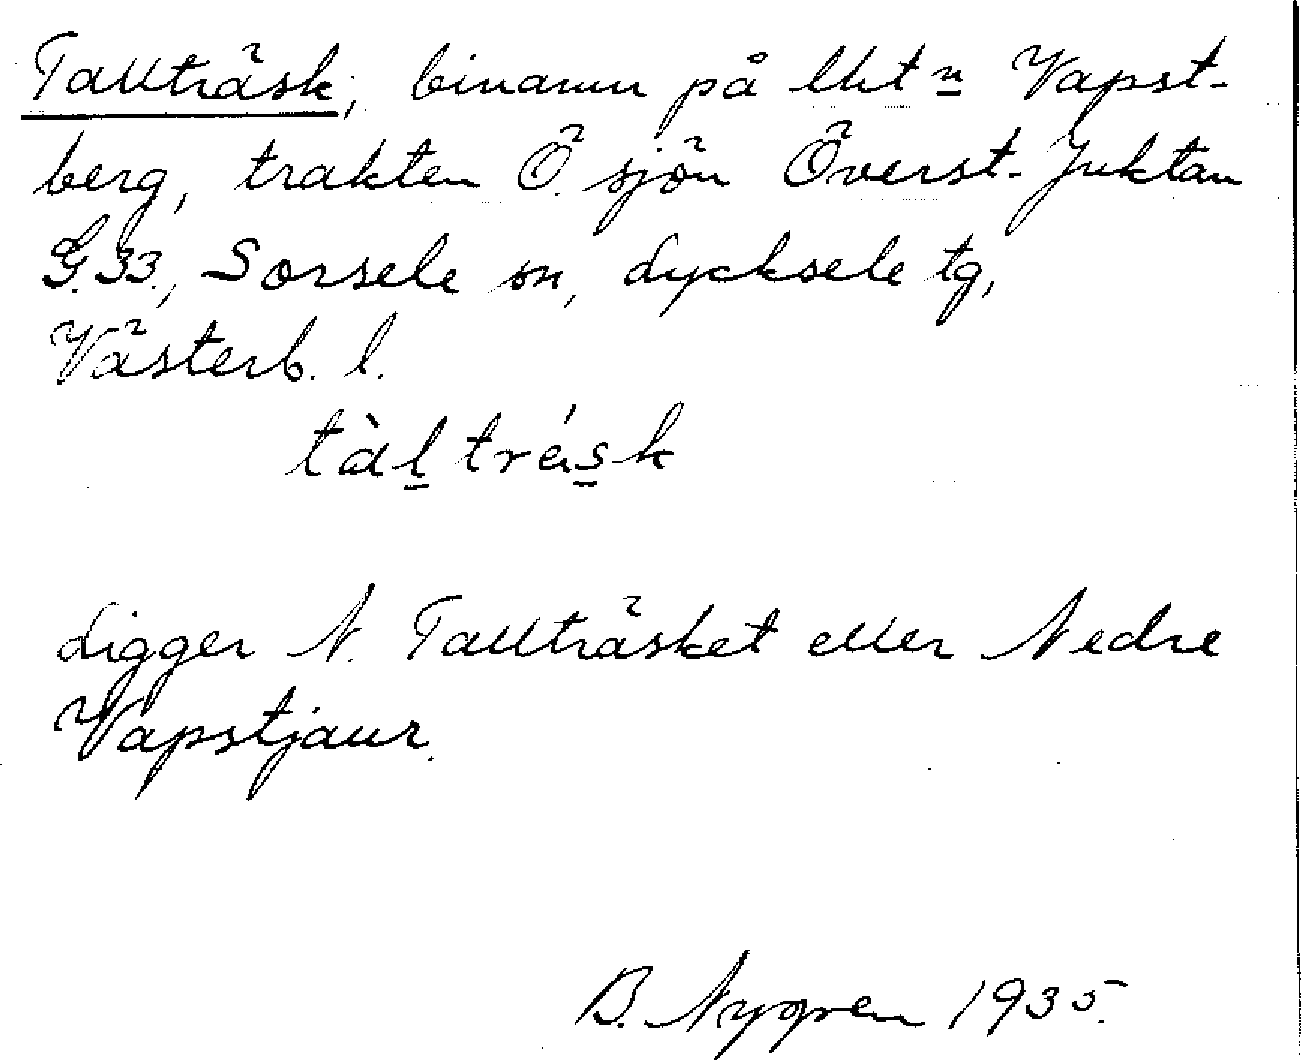 Tallträsk, binamn på lht n Vapst-
berg, trakten Ö. sjön Överst-Juktan
G.33., Sorsele sn, Lycksele tg,
Västerb. l.
tàl̲ trás̲k
Ligger N. Tallträsket eller Nedre
Vapstjaur.
B. Nygren 1935.